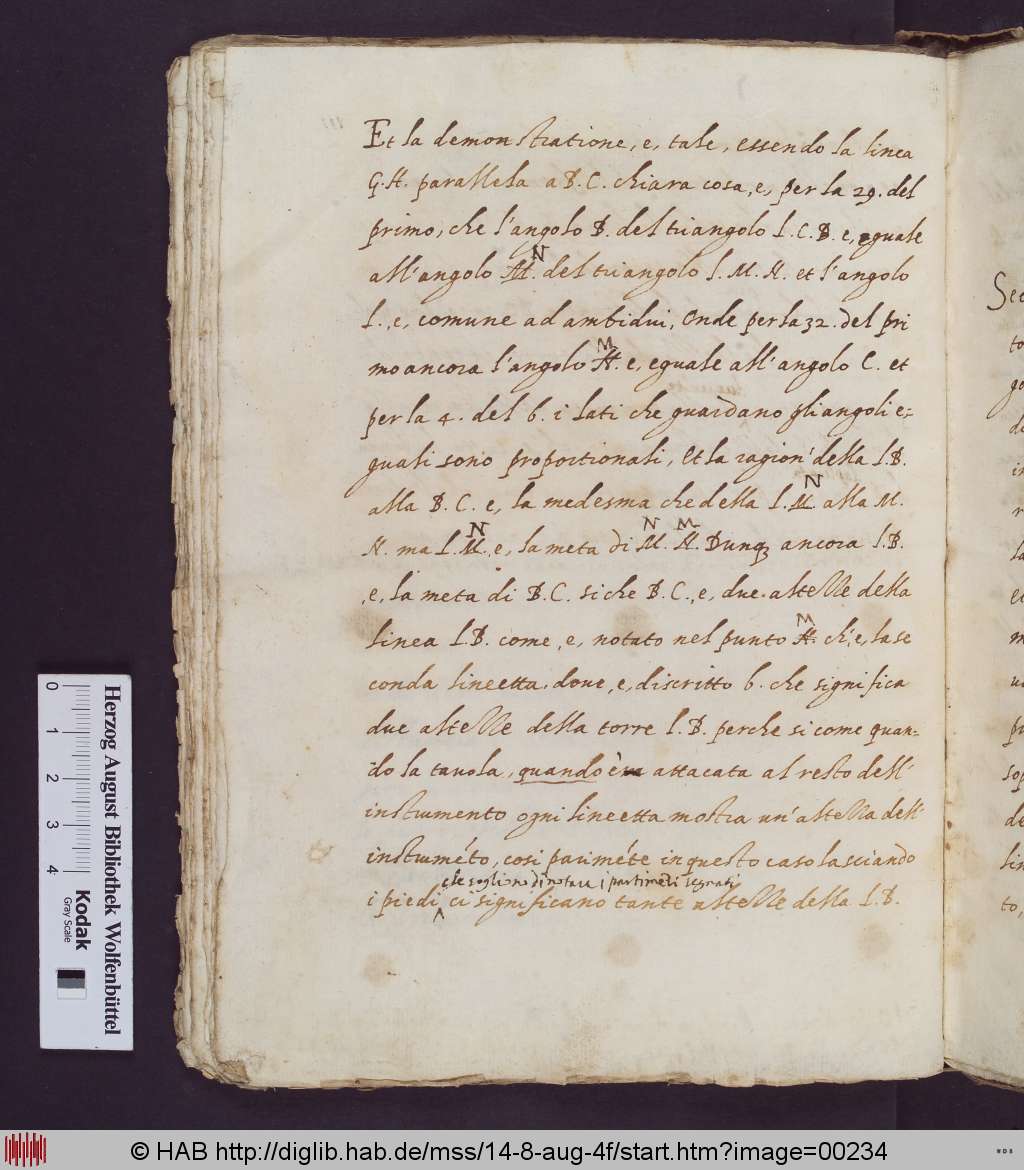 Et la demonstratione, e, tale, essendo la linea
G.H. parallela a B.C. chiara cosa, e, per la 29. del
primo, che l'angolo B. del triangolo I.C.B. e, eguale
N
all'angolo M. del triangolo I.M.H. et l'angolo
I., e, comune ad ambidui, Onde per la 32. del pri
M
mo ancora l'angolo H. e, eguale all'angolo C. et
per la 4. del 6. i lati che guardano gliangoli e=
guali sono proportionali, Et la ragion' della I.B.
N
alla B.C. e, la medesma che della I.M. alla M.
N N M
H. ma I.M., e, la meta di M.H. Dunq3 ancora I.B.
,e, la meta di B.C. si che B.C., e, due. astelle della
M
linea I.B. come, e, notato nel punto H. ch', e, la se
conda lineetta. doue, e, discritto 6. che significa
due astelle della torre I.B. perche si come quan=
do la tauola, quando è attacata al resto dell'
instrumento ogni lineetta mostra un'astella dell'
instruméto, cosi pariméte in questo caso lasciando
che sogliono dinotare i partiméti segnati
i piedi ^ ci significano tante astelle della I.B.
Sec
to
Herzog August Bibliothek Wolfenbüttel
Kodak
Gray Scale
0 1 2 3 4
© HAB http://diglib.hab.de/mss/14-8-aug-4f/start.htm?image=00234